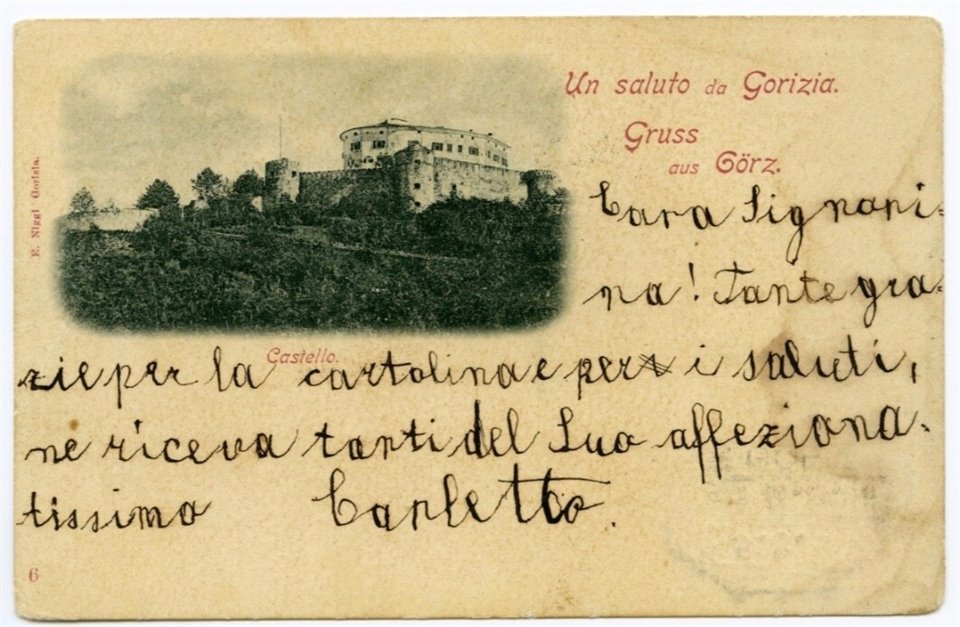 Un saluto da Gorizia.
Gruss
aus Görz.
E. Niggl Gorizia.
Cara Signori-
na! Tante gra-
Castello.
zie per la cartolina e per i saluti,
ne riceva tanti del Suo affeziona-
tissimo Carletto.
6